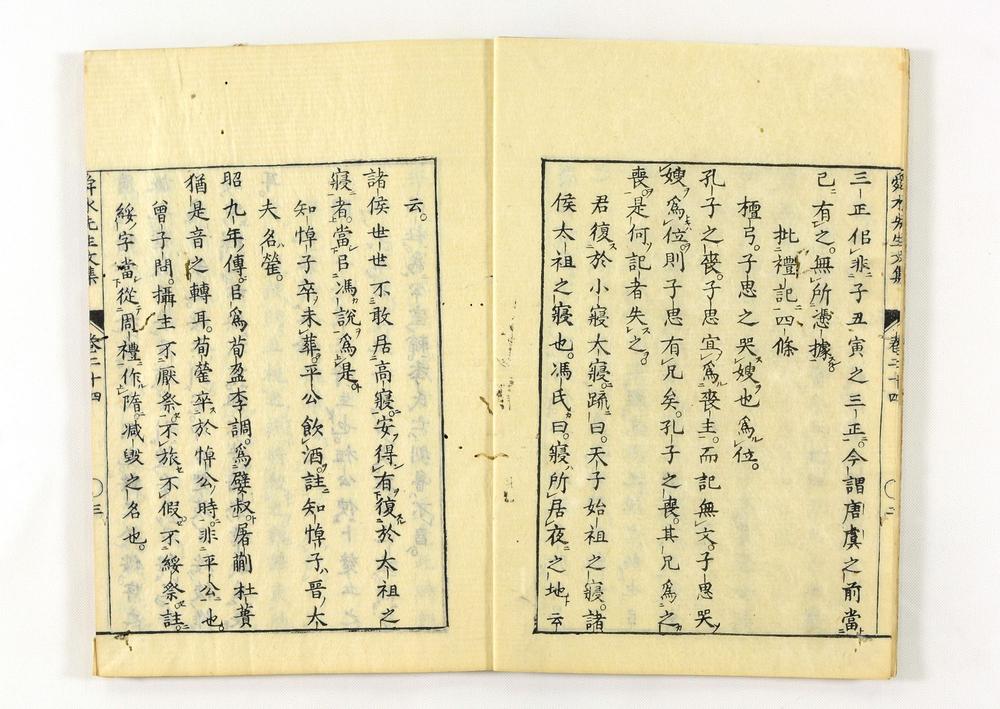 三正佀非子丑寅之三正。今謂唐虞之前當
已有之。無所憑據
批禮記四條
檀弓。子思之哭嫂也爲位。
孔子之喪。子思宜爲喪主。而記無文。子思哭
嫂爲位。則子思有兄矣。孔子之喪。其兄爲之
喪。是何記者失之。
君復於小寢大寢。疏曰。天子始祖之寢。諸
侯太祖之寢也。馮氏曰。寢所居夜之地云
舜水先生文集
卷二十四
二
云。
諸侯世世不敢居高寢。安得有復於太祖之
寢者。當㠯馮說爲是。
知悼子卒。未葬。平公飲酒。註知悼子。晉大
夫名罃。
昭九年傳。㠯爲荀盈李調。爲嬖叔屠蒯杜蕢
猶是音之轉耳。荀罃卒於悼公時。非平公也。
曾子問。攝主不厭祭。不旅不假。不綏祭。註。
綏字當從周禮作隋。減毀之名也。
舜水先生文集
卷二十四
三